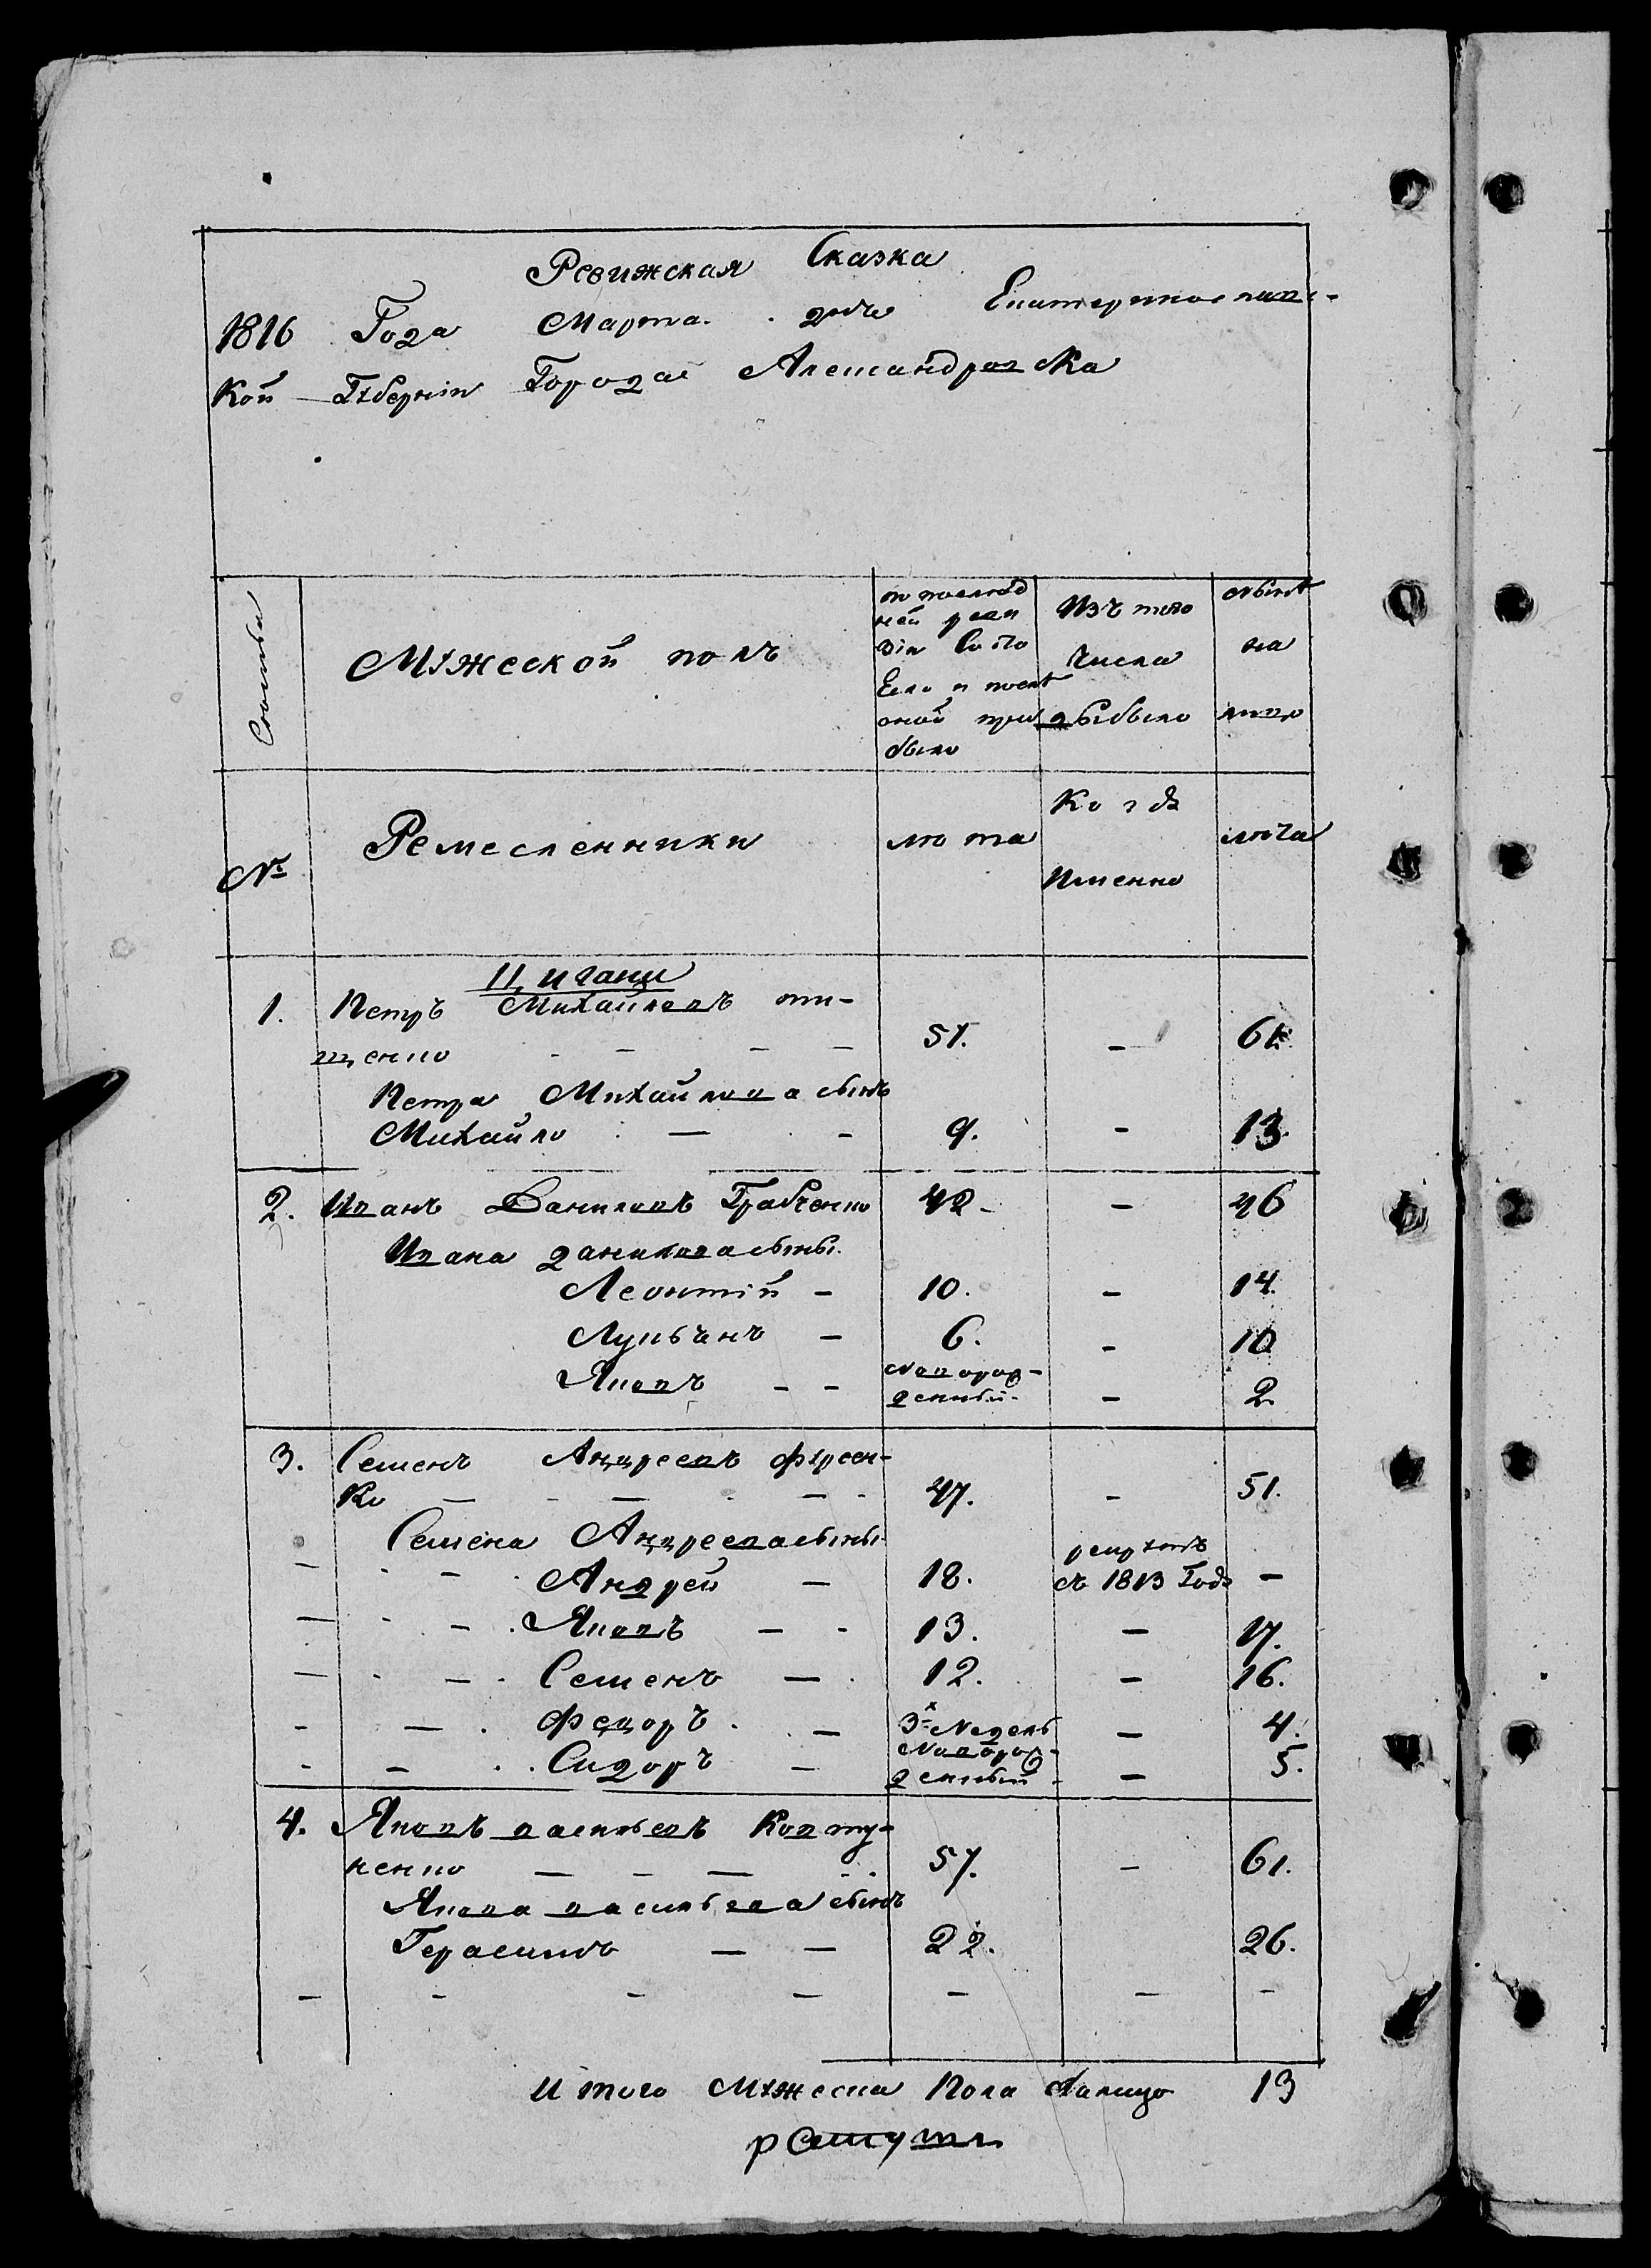 Ревижская Сказка
1816 Года Марта. дня Екатеринославс-
кой Губерніи Города Александровска
Статьи
Мужеской полъ
по послѣд
ней реви
зіи состо
яло и послѣ
оной при
было
Изъ того
числа
выбыло
нынѣ
на
лицо
№
Ремесленники
лѣта
Когда
Именно
лѣта
Цигани
1. Петръ Михайловъ оти-
щенко - - - 57. - 61.
Петра Михайлова сынъ
Михайло - - 9. - 13.
2. Иванъ Даниловъ Грабченко 42 - - 46
Ивана данилова сыны
Леонтій - 10. - 14.
Лукьянъ - 6. - 10
Яковъ - - Новорож-
денный. - 2.
3. Семенъ Андреевъ фурсен-
ко - - - - 47. - 51.
Семена Андреева сыны
Андрей - 18. рекрутъ
съ 1813 Года -
Яковъ - - 13. - 17.
Семенъ - 12. - 16.
Федоръ - 3х недель - 4.
Сидоръ - Новорож-
денный - - 5.
4. Яковъ васильевъ Ковту-
ненко - - - - 57. - 61.
Якова васильева сынъ
Герасимъ - - 22. 26.
- - - - - - -
Итого Мужеска Пола налицо 13